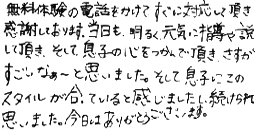 無料体験の電話をかけてすぐに対応して頂き
感謝しております。当日も、明るく元気に指導や説
して頂き、そして息子の心をつかんで頂き、さすが
すごいなぁ〜と思いました。そして息子にこの
スタイルが合っていると感じましたし、続けられ
思いました。今日はありがとうございます。